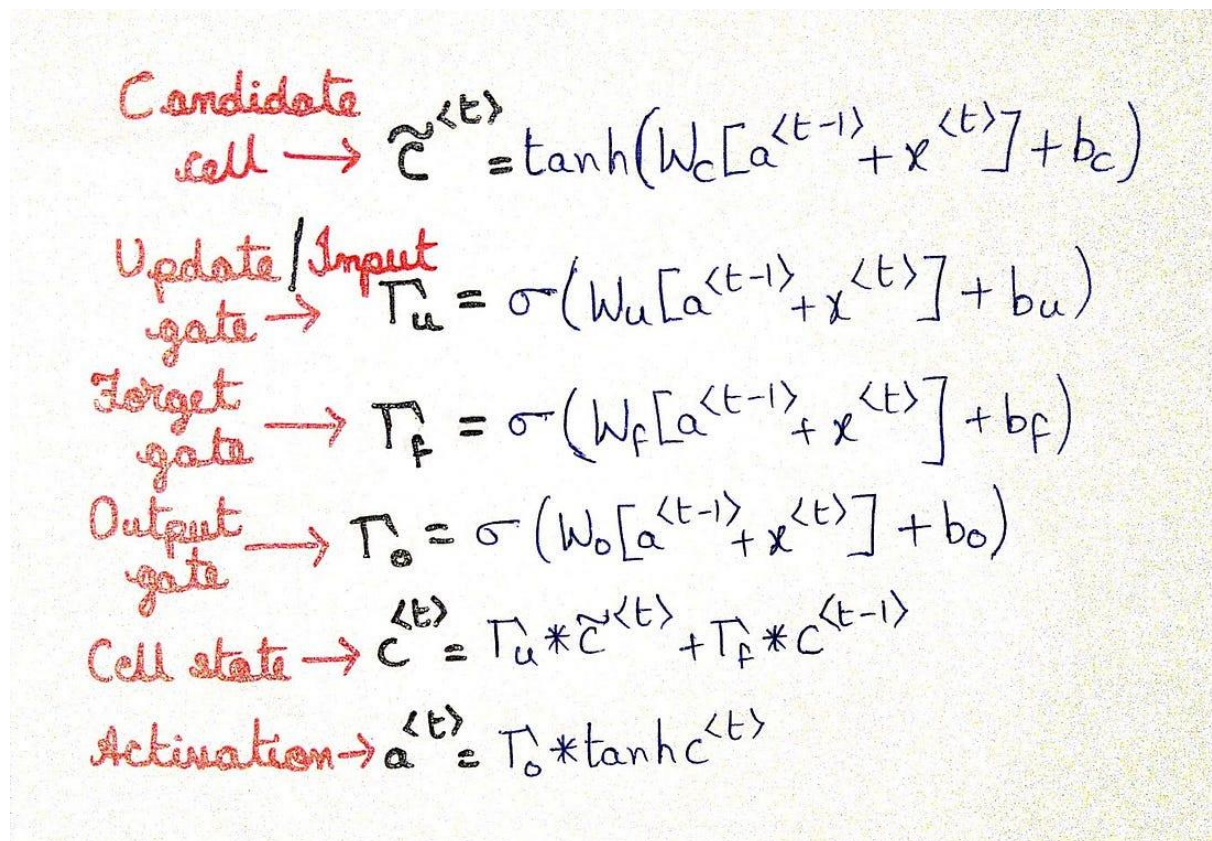 Candidate
cell → c̃^<t> = tanh(W_c[a^<t-1> + x^<t>] + b_c)
Update/Input
gate → Γ_u = σ(W_u[a^<t-1> + x^<t>] + b_u)
Forget
gate → Γ_f = σ(W_f[a^<t-1> + x^<t>] + b_f)
Output
gate → Γ_o = σ(W_o[a^<t-1> + x^<t>] + b_o)
Cell state → c^<t> = Γ_u * c̃^<t> + Γ_f * c^<t-1>
Activation → a^<t> = Γ_o * tanh c^<t>